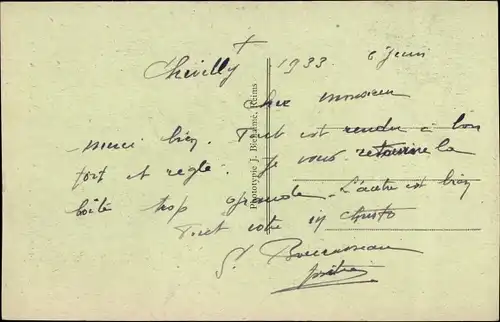 +
Chevilly 1933 6 Juin
Cher monsieur
Merci bien. Tout est rendu à bon
port et réglé. Je vous retourne la
boîte trop grande. L'autre est bien
Tout votre in Christo
Phototypie J. Bienaimé, Reims